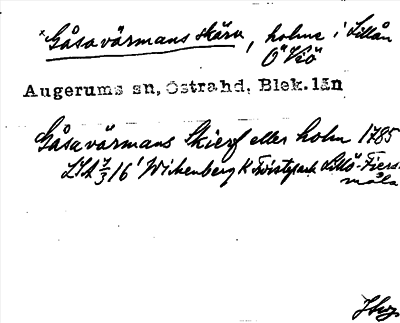 *Gåsavärmans skäru, holme i Lillån
Ö Kiö
Augerums sn, Östrahd, Blek.län
Gåsavärmans Skierf eller holm 1785
LSA 7/3 16' Wikenberg K Tvistepark Lillö-Fiers-
måla